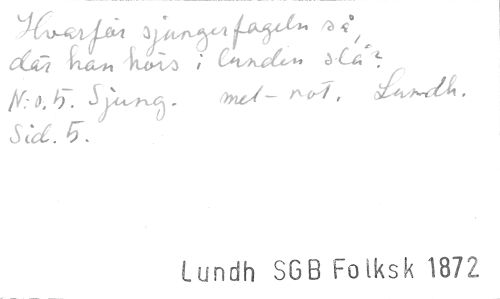 Hvarför sjunger fageln så,
där han hörs i lunden slå?
N:o. 5. Sjung. mel-not. Lundh.
Sid. 5.
Lundh SGB Folksk 1872